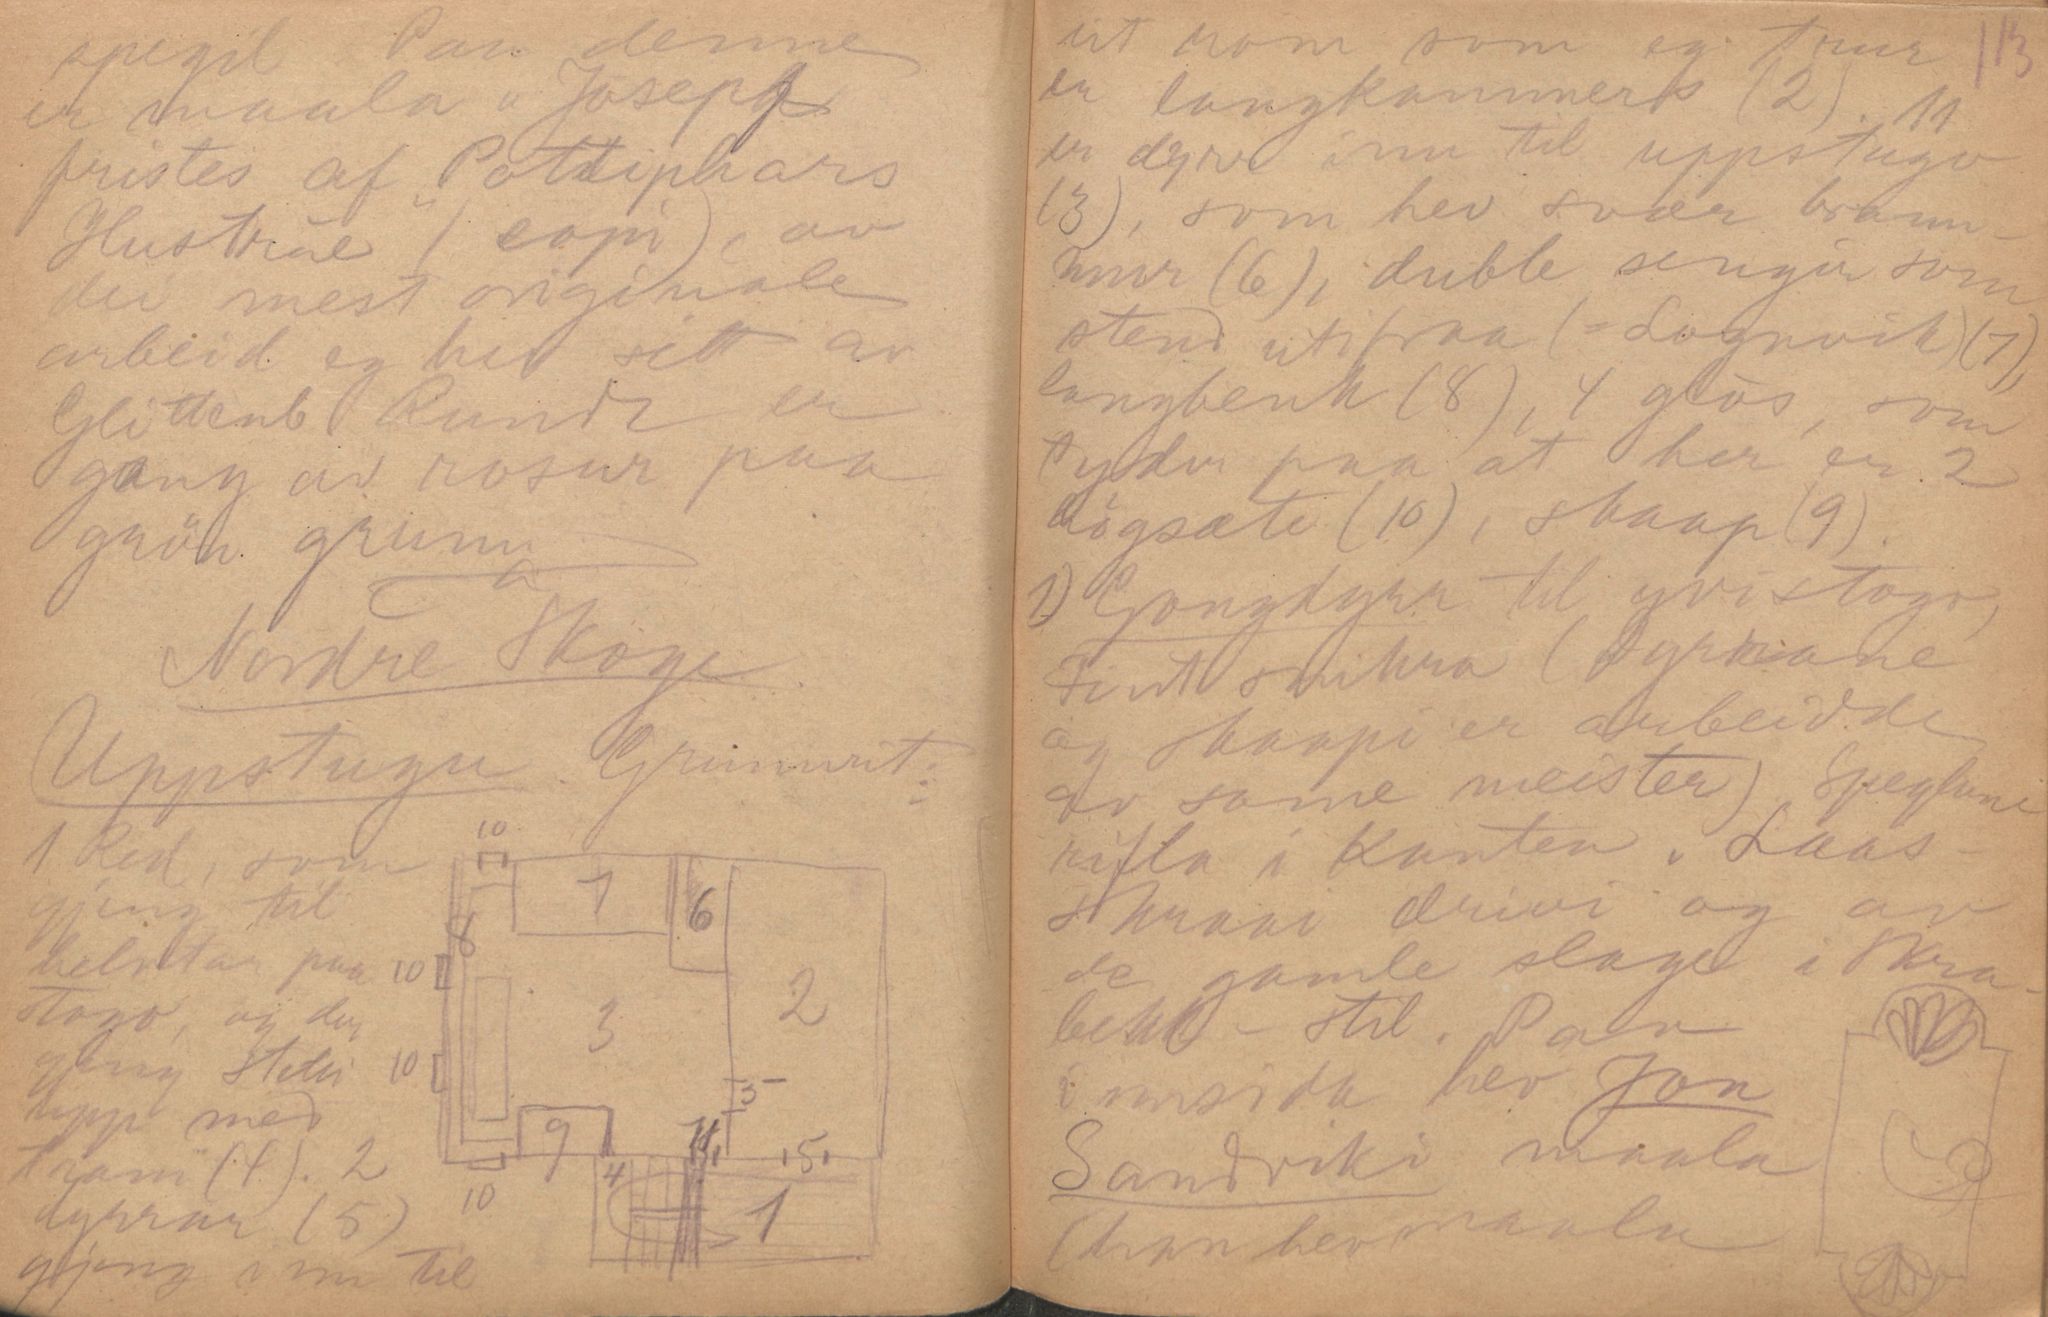 spegil Paa denne
er maala „Joseph
fristes af Pottiphars
Hustrüe" (copi), av
dei mest originale
arbeid eg hev sett av
Glittenb Rundt er
gang av rosur paa
grön grunn
Nordre Skoge
Uppstugu. Grunnrit:
1 Red, som
gjeng til
helvtar paa
stogo, og der
gjeng steler
upp med
tram (4). 2
dyrrar (5)
gjeng inn til
10
7
6
8
10
3
2
10
5
9
11
5
4
1
10
113
eit rom som eg truur
er langkammers (2). 11
er dyrr inn til uppstugo
(3), som hev svær brann-
mur (6), duble sengir som
stend utifraa (= Lognvik) (7),
langbenk (8), 4 glas, som
tyder paa at her er 2
högsæte (10), skaap (9).
1) Gongdyrr til yvistogo,
fint snikra (Dyrrane
og skaapi er arbeidde
av same meister), Speglane
rifla i kanten. Laas-
skraai drivi og av
de gamle slage i Skra-
bekk-stil. Paa
innsida hev Jon
Sandviki maala
(han hev maala